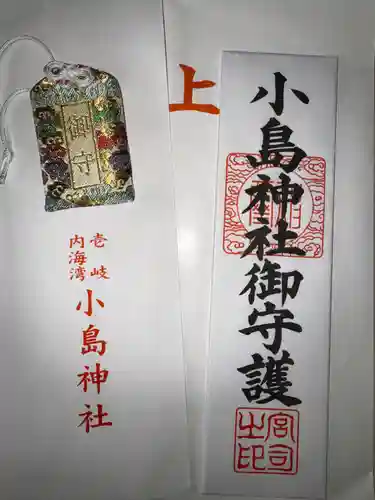 上
小島神社御守護
宮司之印
御守
壱岐
内海湾
小島神社